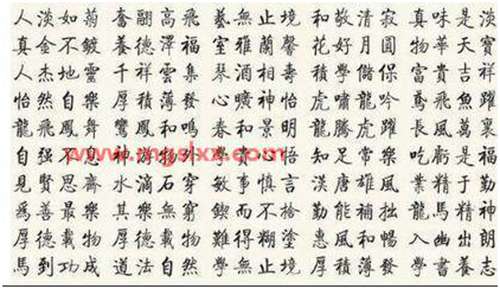 人淡如菊 奮翮高飛 藝無止境 和敬清寂 真味是淡
真金不鍍 養德澤福 室雅蘭馨 花好月圓 物華天寶
人杰地靈 千祥雲集 琴酒相壽 積學儲保 富貴吉祥
怡然自樂 厚積薄發 心曠神怡 虎嘯龍吟 鳶飛魚躍
龍飛鳳舞 鸞鳳和鳴 春和景明 龍騰虎躍 長風萬裏
自强不息 知足常樂 吃虧是福
www.mgslxx.com
見賢思齊 水滴石穿 敏事慎言 漢唐雄風 業精于勤
為善最樂 其樂無窮 鍥而不捨 勤能補拙 龍馬精神
厚德載物 厚德載物 難得糊塗 惠風和暢 入幽出朗
馬到功成 道法自然 學無止境 厚積薄發 學書養志